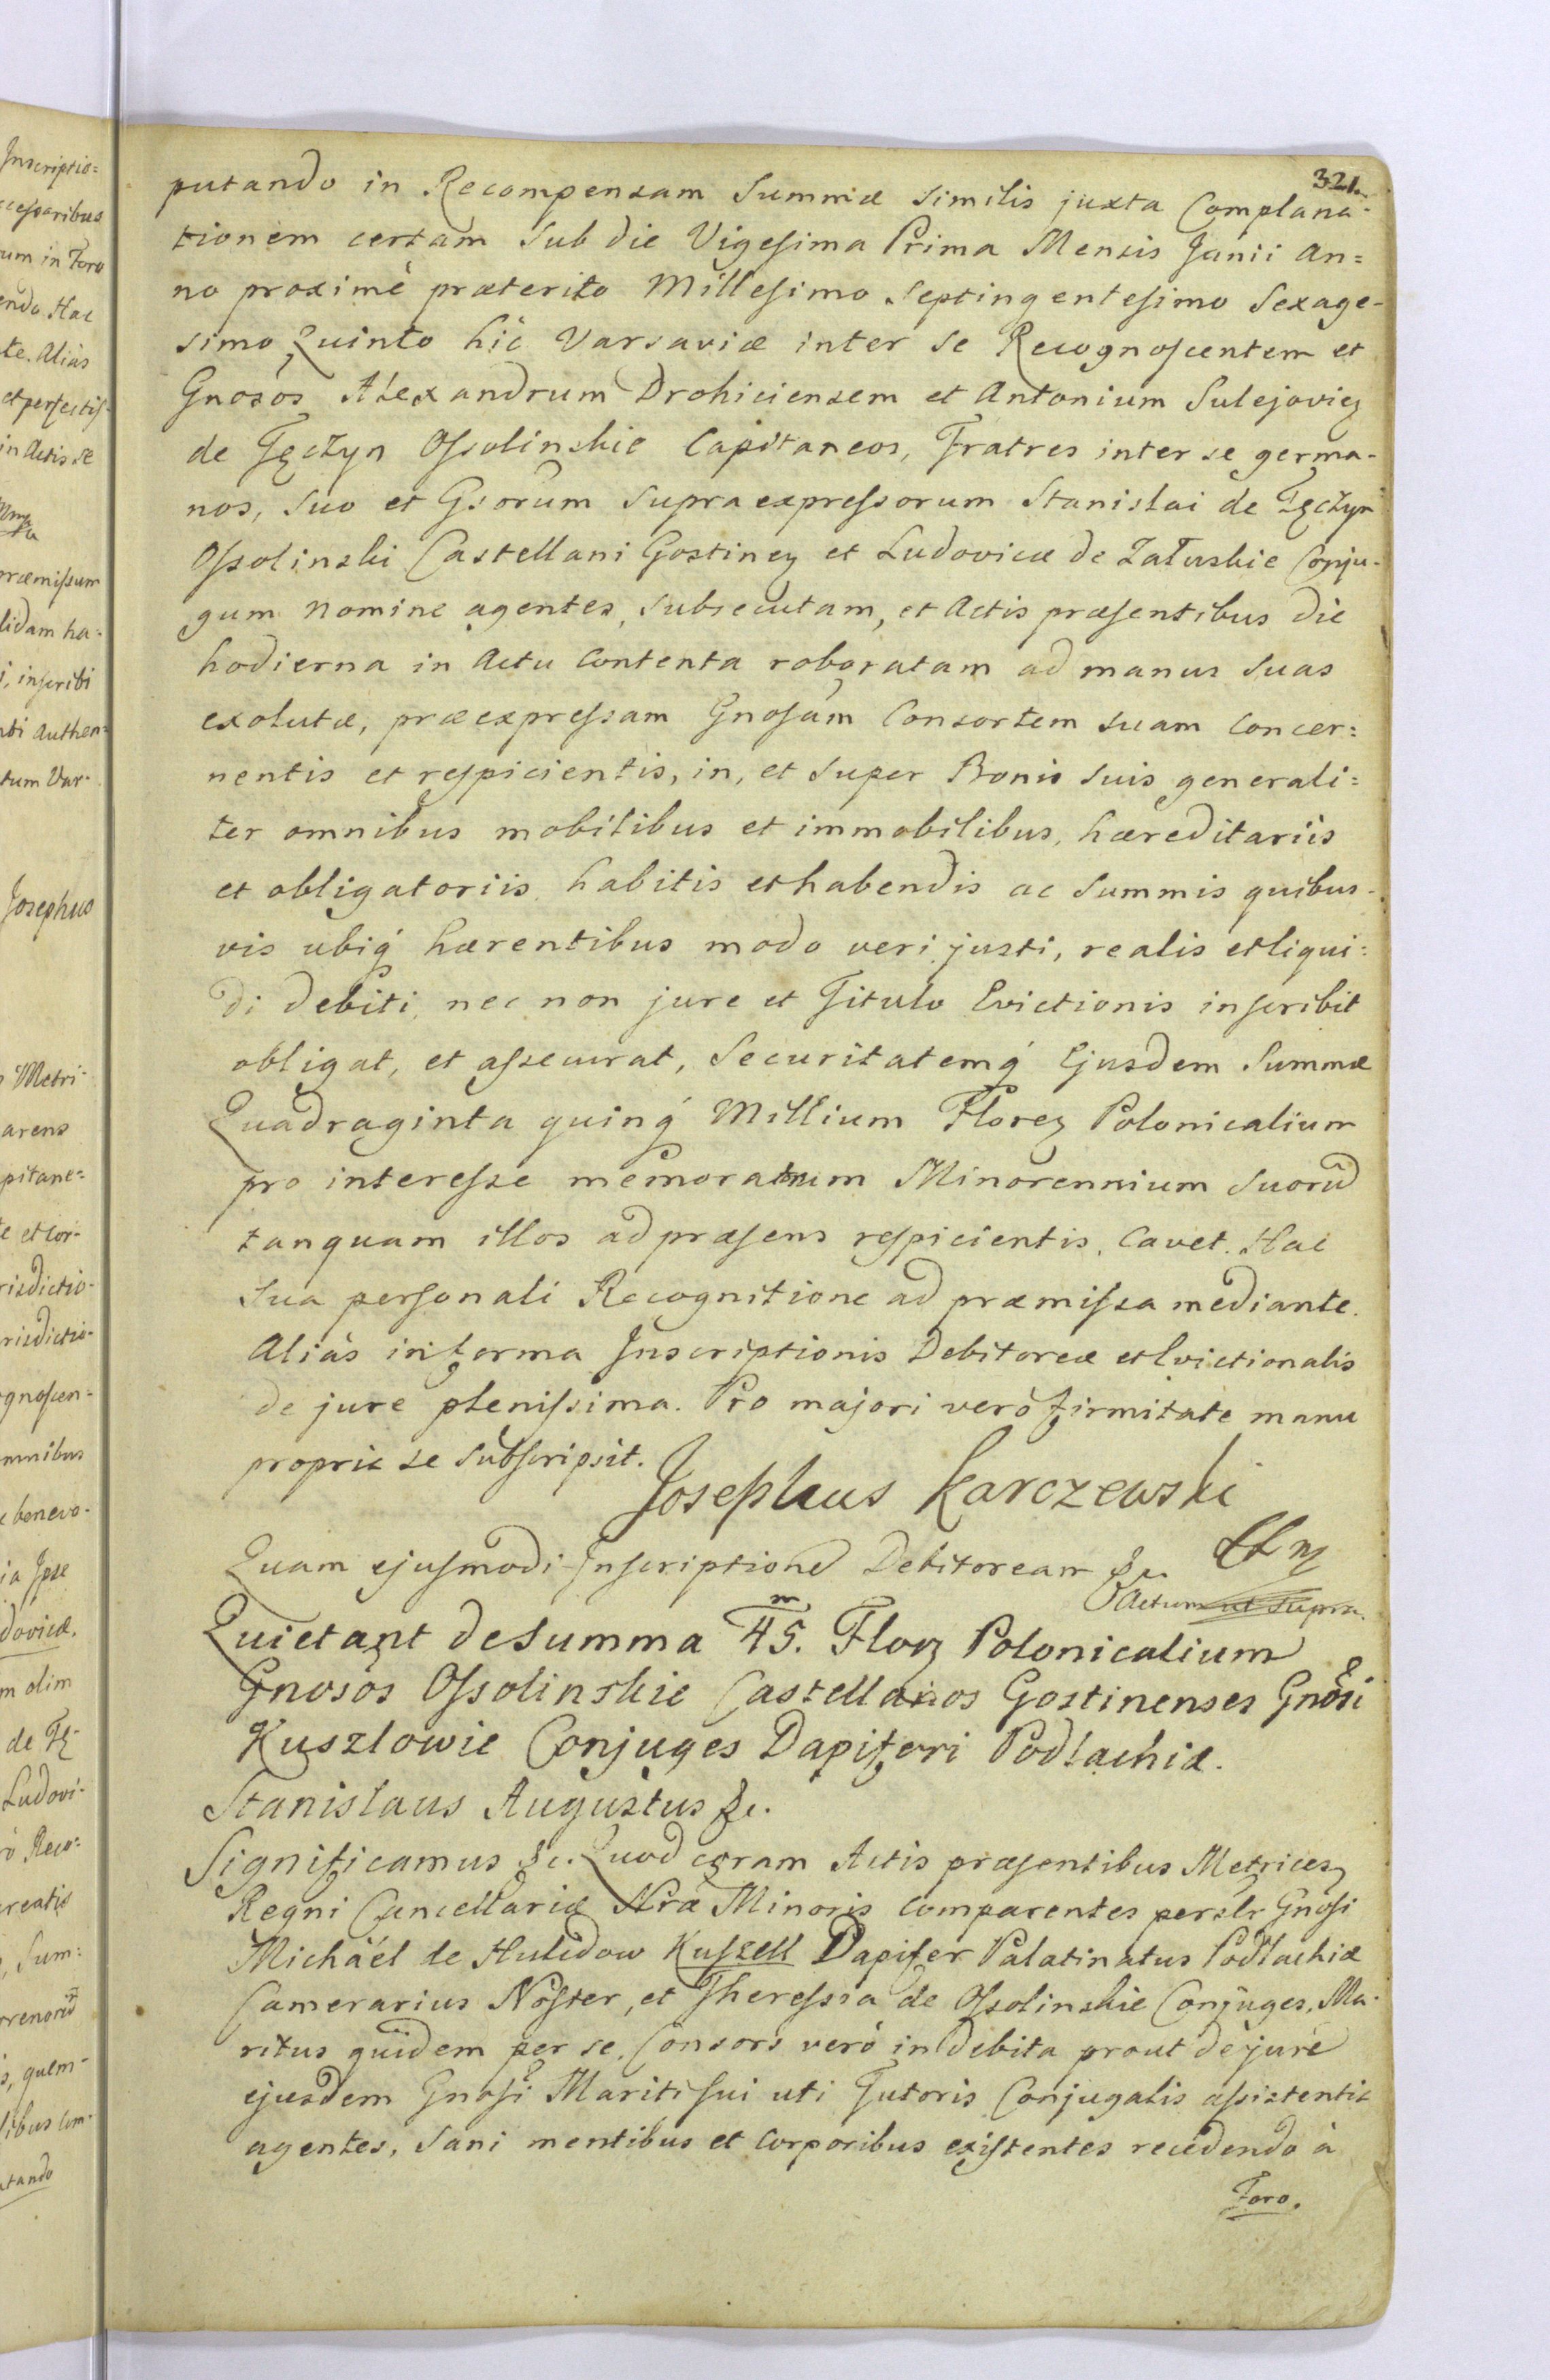 321.
putando in Recompensam Summæ similis juxta Complana-
tionem certam sub die Vigesima Prima Mensis Junii An=
no proximè præterito Millesimo Septingentesimo Sexage-
simo Quinto hic Varsaviæ inter se Recognoscentem et
Gnosos Alexandrum Drohiciensem et Antonium Sulejovieȝ
de Tęczyn Ossolinskie Capitaneos, Fratres inter se germa-
nos, suo et Gsorum supraexpressorum Stanislai de Tęczyn
Ossolinski Castellani Gostineȝ et Ludovicæ de Załuskie Conju-
gum nomine agentes, subsecutam, et Actis præsentibus die
hodierna in Actu contenta roboratam ad manus suas
exolutæ, præexpressam Gnosam Consortem suam concer=
nentis et respicientis, in, et super Bonis suis generali=
ter omnibus mobilibus et immobilibus, hæreditariis
et obligatoriis habitis et habendis ac Summis quibus-
vis ubiq́ hærentibus modo veri justi, realis et liqui=
di debiti, nec non jure et Titulo Evictionis inscribit
obligat, et assecurat, Securitatemq́ Ejusdem Summæ
Quadraginta quinq́ Millium Floreȝ Polonicalium
pro interesse memoratum Minorennium Suorū
tanquam illos ad præsens respicientis, cavet. Hac
sua personali Recognitione ad præmissa mediante.
Aliàs in forma Inscriptionis Debitoreæ et Evictionalis
de jure plenissima. Pro majori verò firmitate manu
propria se subscripsit.
Josephus Karczewski
Quam ejusmodi Inscriptionē Debitoream &c.
Actum ut supra.
Quietant de Summa 45.m Floȝ Polonicalium
Gnosos Ossolinskie Castellanos Gostinenses Gnosi
Kuszlowie Conjuges Dapiferi Podlachiæ.
Stanislaus Augustus &c.
Significamus &c. Quod coram Actis præsentibus Metriceȝ
Regni Cancellariæ Nræ Minoris comparentes perslr Gnosi
Michäel de Hulidow Kuszell Dapifer Palatinatus Podlachiæ
Camerarius Noster, et Theressia de Ossolinskie Conjuges, Ma-
ritus quidem per se, Consors verò in debita prout de jure
ejusdem Gnosi Mariti sui uti Tutoris Conjugalis assistentia
agentes, sani mentibus et corporibus existentes recedendo à
Foro.